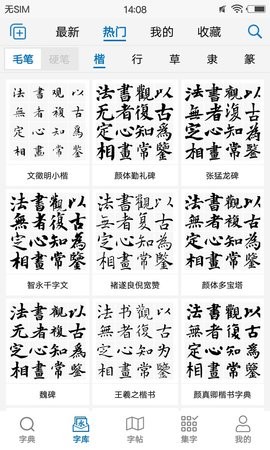 无SIM
14:08
最新 热门 我的 收藏
毛笔 硬笔 楷 行 草 隶 篆
法書觀以
無者複古
定心知為
相畫常鑒
文徵明小楷
法書觀以
无者復古
定心知為
相畫常鑒
颜体勤礼碑
法書觀以
无者復古
定心知為
相畫常鑒
张猛龙碑
法書觀以
無者復古
定心知為
相畫常鑒
智永千字文
法書觀以
無者復古
定心知為
相畫常鑒
褚遂良倪宽赞
法書觀以
無者復古
定心知為
相畫常鑒
颜体多宝塔
法書觀以
無者復古
定心知為
相畫常鑒
魏碑
法书觀以
無者複古
定心知為
相畫常鑒
王羲之楷书
法書觀以
無者復古
定心知為
相畫常鑒
颜真卿楷书字典
字典 字库 字帖 集字 我的